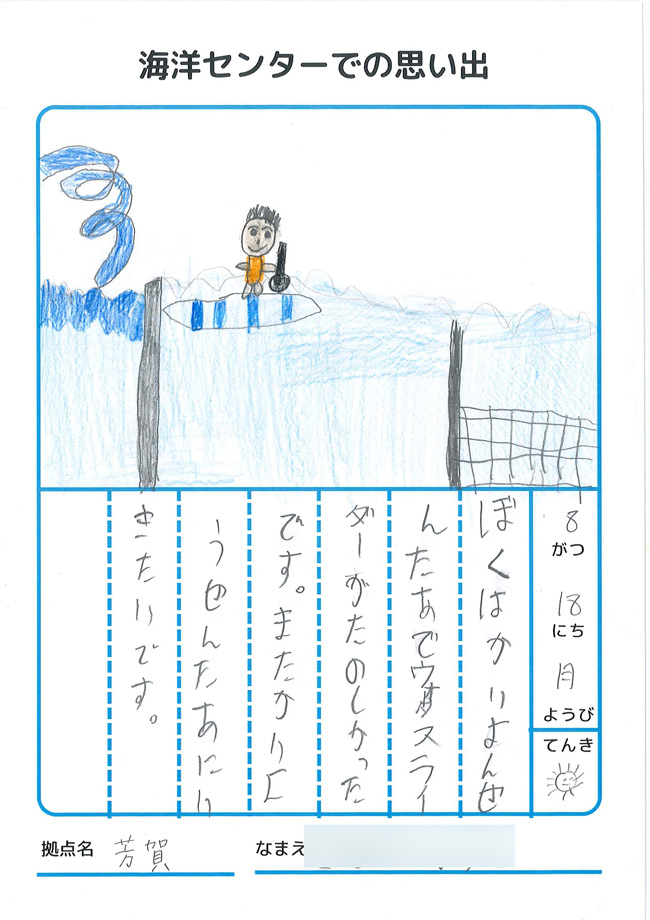 海洋センターでの思い出
8
がつ
18
にち
月
ようび
てんき
ぼくはかいよんせ
んたあでウオスライ
ダーがたのしかった
です。またかいよ
うせんたあにい
きたいです。
拠点名 芳賀
なまえ